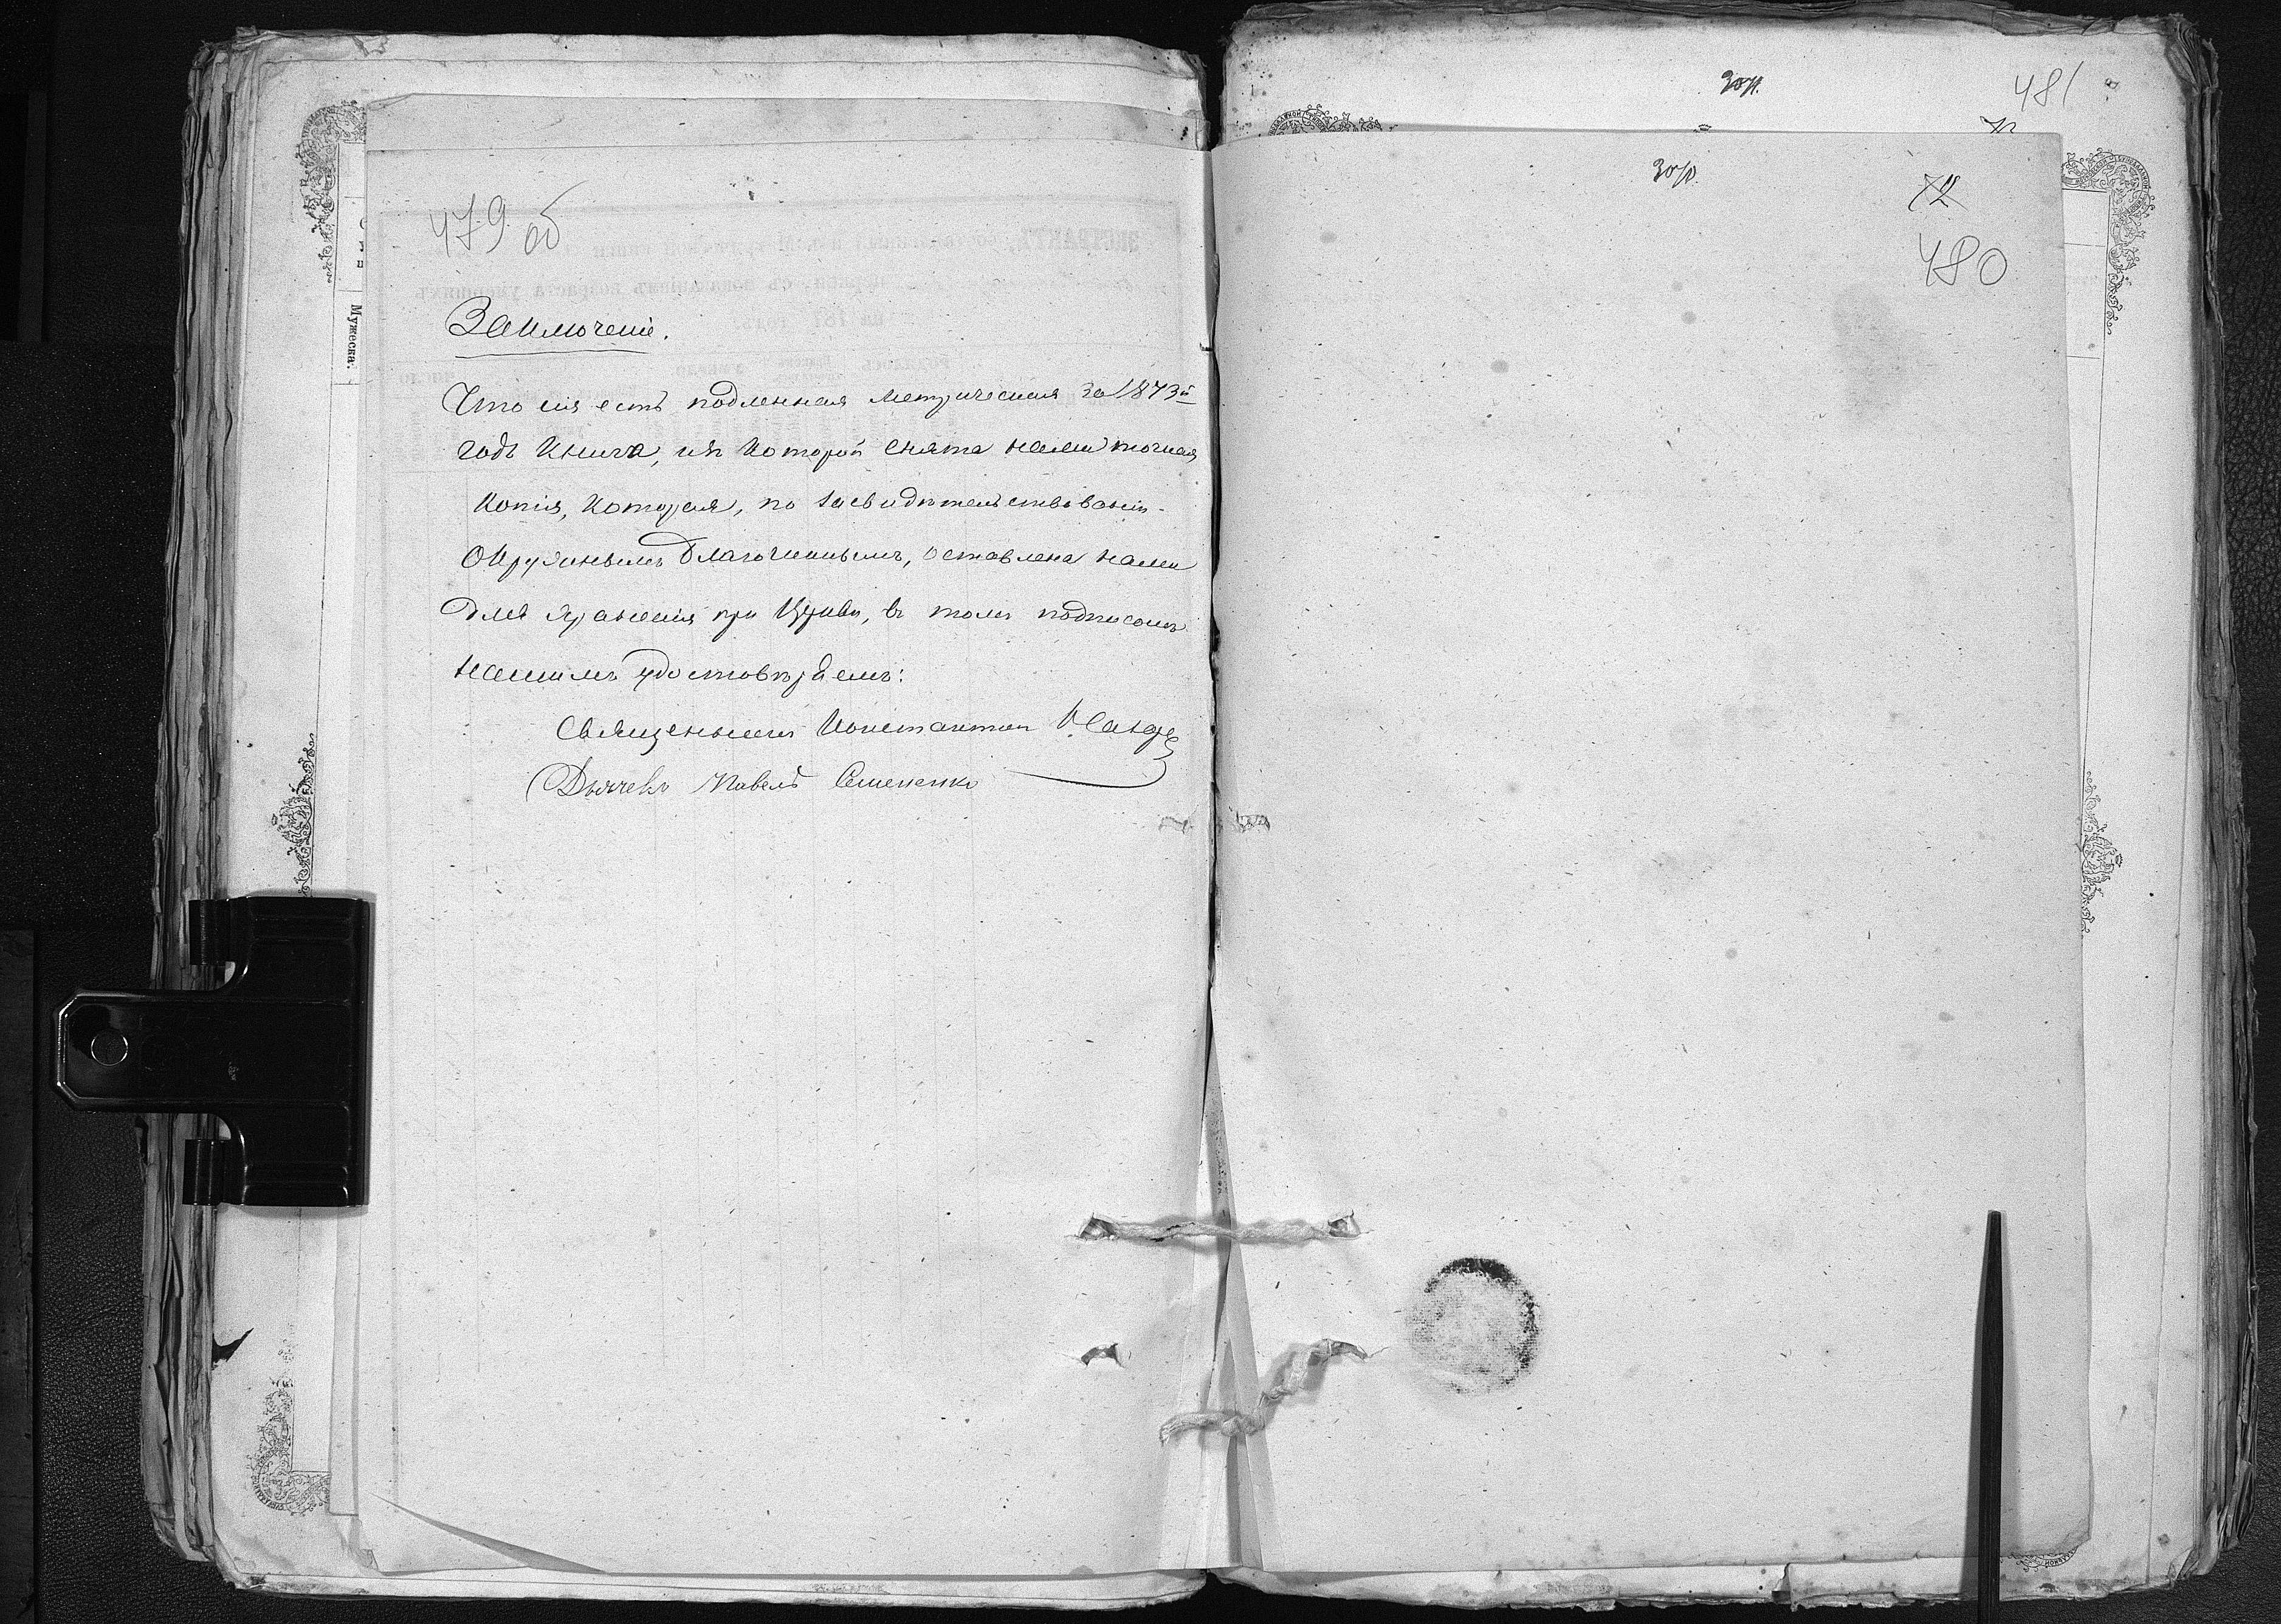 479 об
Заключенiе.
Что сiя есть подленная метрическая за 1873й
годъ Книга, изъ Которой снята нами точная
Копiя, Которая, по засвидѣтельствованiи
Окружнымъ Благочиннымъ, оставлена нами
для храненiя при Церкви, въ томъ подписомъ
нашимъ удостовѣряемъ:
Священникъ Константинъ
Дьячекъ Павелъ Семененко
Мужеска.
481
72
480